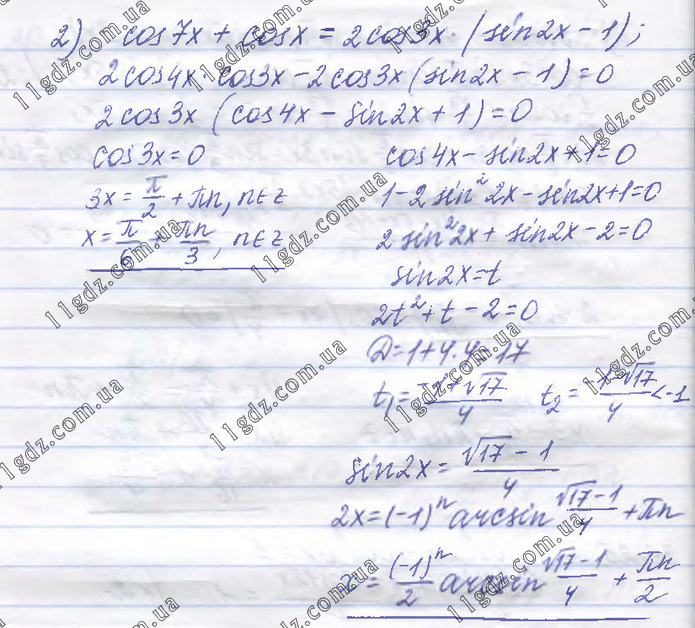 2) cos7x + cosx = 2cos3x · (sin2x - 1);
2cos4x · cos3x - 2cos3x (sin2x - 1) = 0
2cos3x (cos4x - sin2x + 1) = 0
cos3x = 0
3x = π/2 + πn, n∈Z
x = π/6 + πn/3, n∈Z
cos4x - sin2x + 1 = 0
1 - 2sin²2x - sin2x + 1 = 0
2sin²2x + sin2x - 2 = 0
sin2x = t
2t² + t - 2 = 0
D = 1 + 4·4 = 17
t₁ = (-1+√17)/4 t₂ = (-1-√17)/4 < -1
sin2x = (√17 - 1)/4
2x = (-1)ⁿ arcsin (√17 - 1)/4 + πn
x = (-1)ⁿ/2 arcsin (√17 - 1)/4 + πn/2
11gdz.com.ua